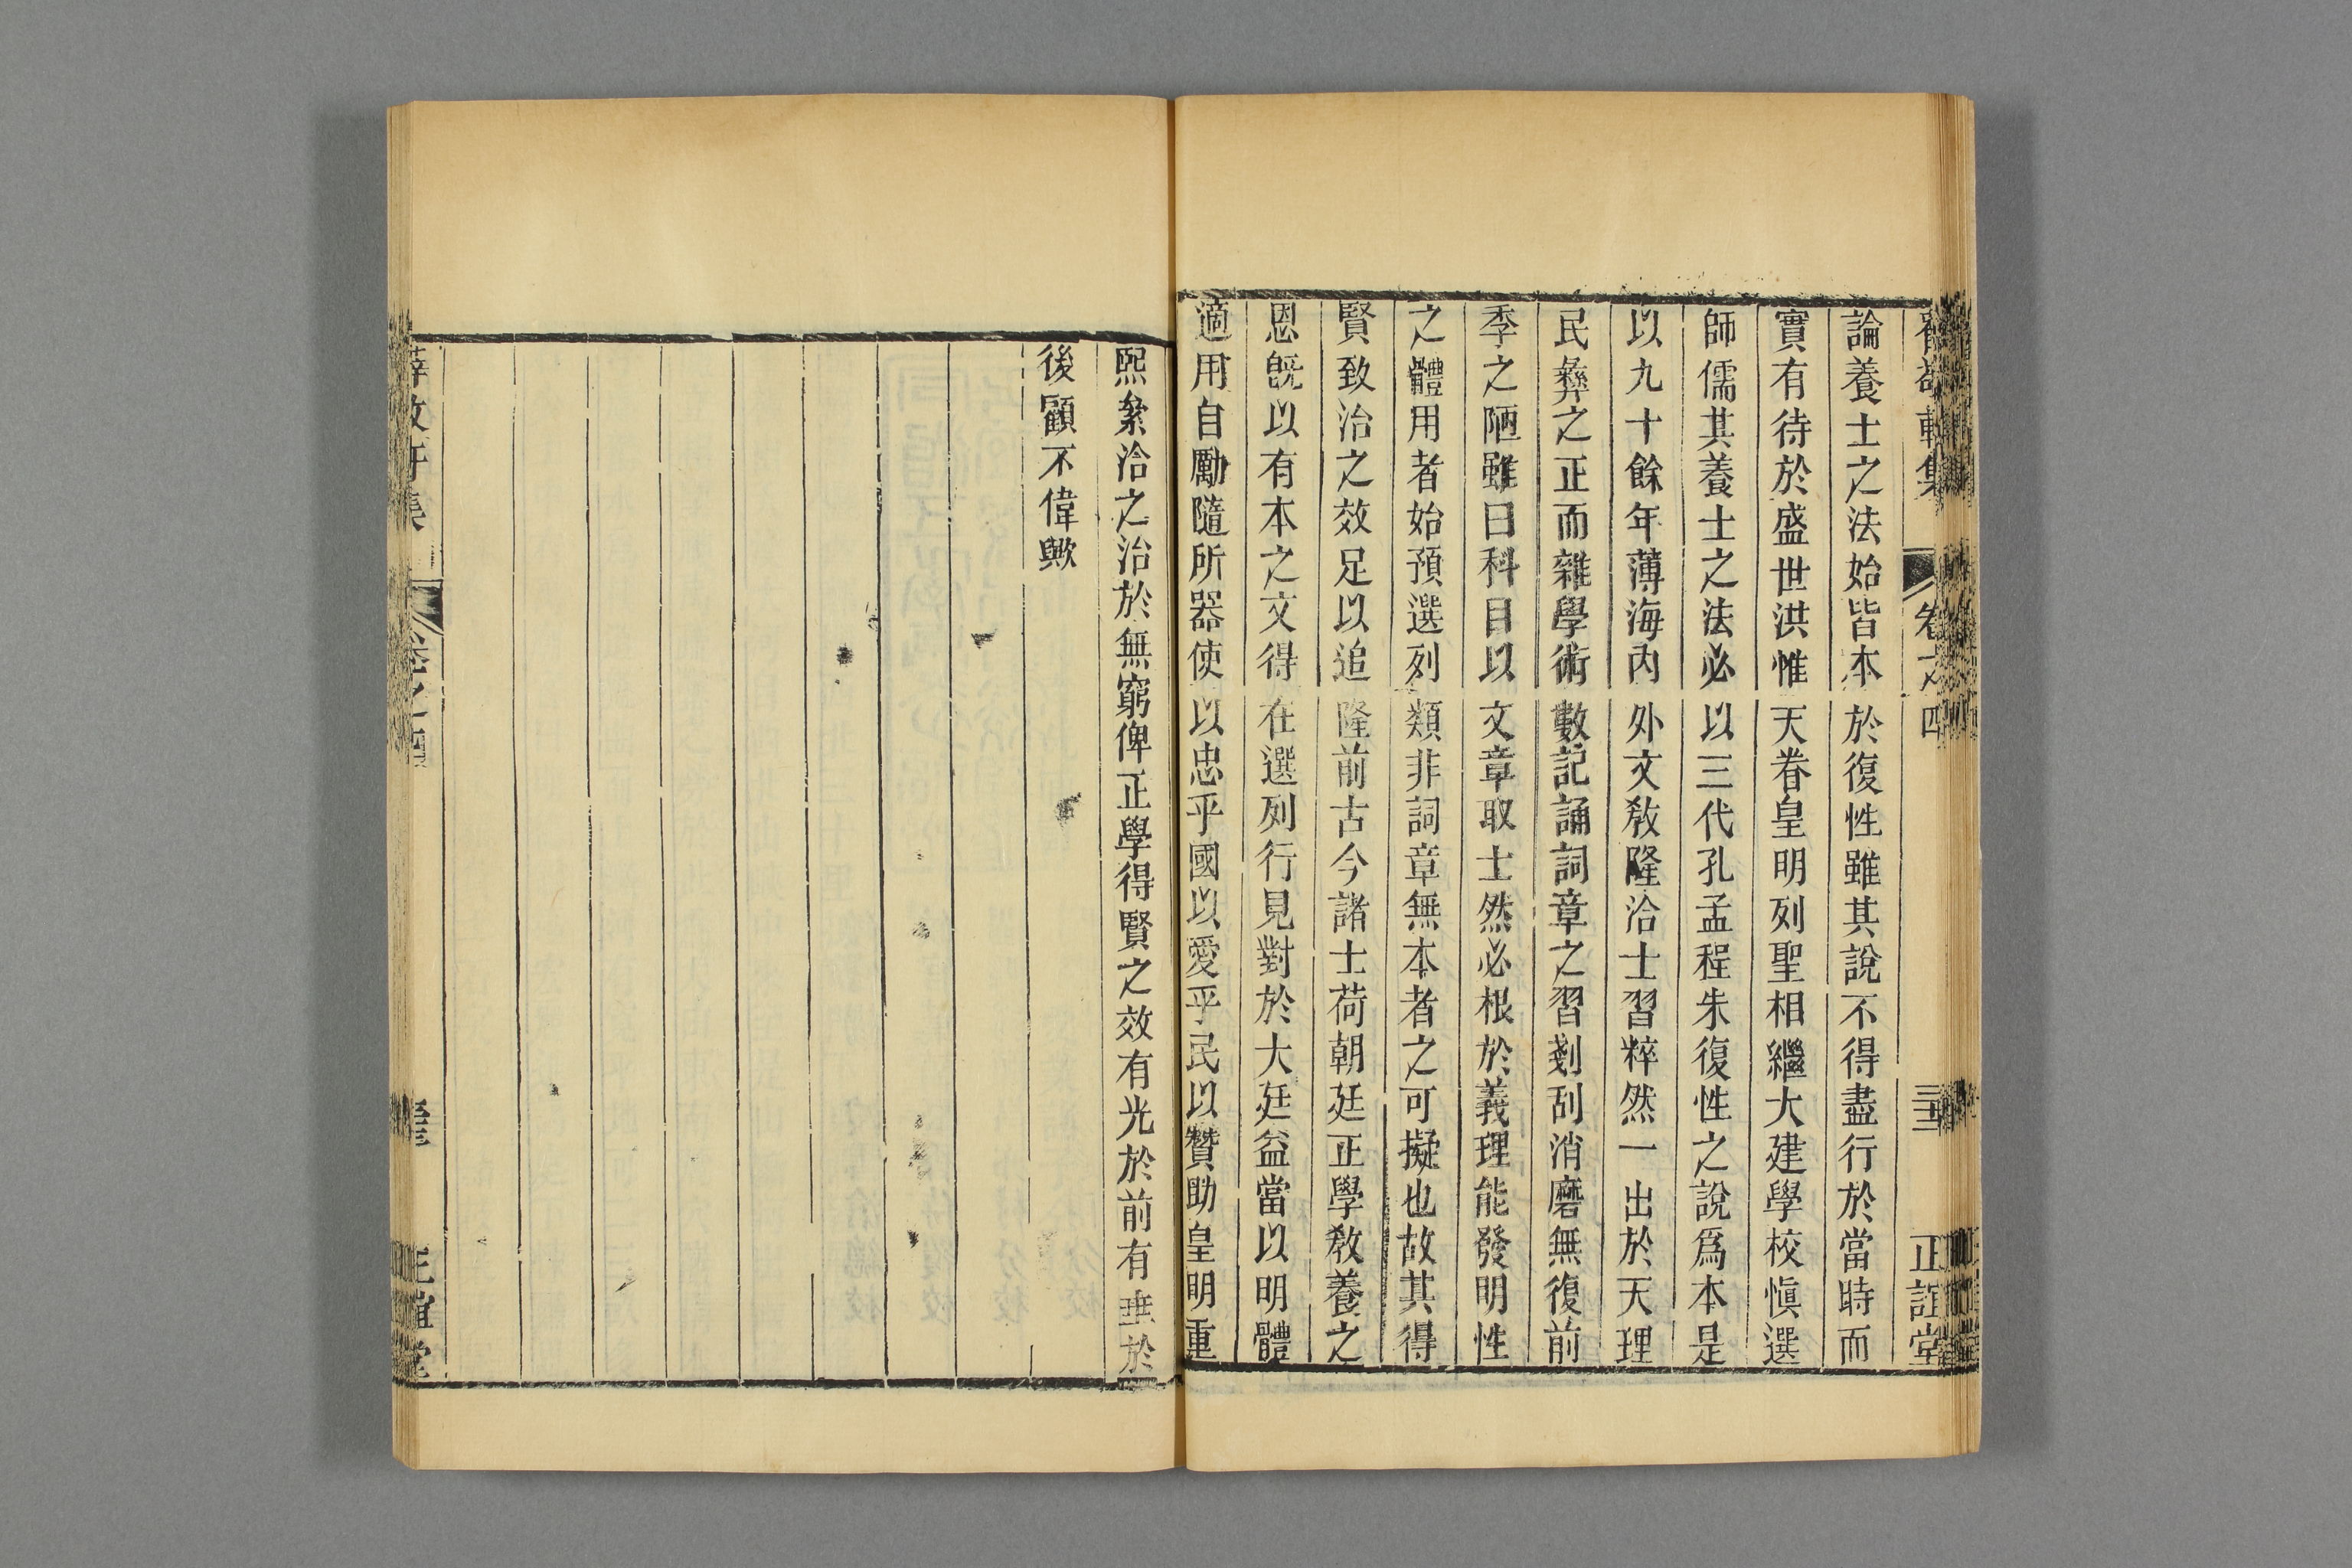 論養士之法始皆本於復性雖其說不得盡行於當時而
實有待於盛世洪惟天眷皇明列聖相繼大建學校愼選
師儒其養士之法必以三代孔孟程朱復性之說爲本是
以九十餘年薄海內外文敎隆洽士習粹然一出於天理
民彝之正而雜學術數記誦詞章之習剗刮消磨無復前
季之陋雖曰科目以文章取士然必根於義理能發明性
之體用者始預選列類非詞章無本者之可擬也故其得
賢致治之效足以追隆前古今諸士荷朝廷正學敎養之
恩旣以有本之文得在選列行見對於大廷益當以明體
適用自勵隨所器使以忠乎國以愛乎民以贊助皇明重
熙絫洽之治於無窮俾正學得賢之效有光於前有垂於
後顧不偉歟
卷之四
正誼堂